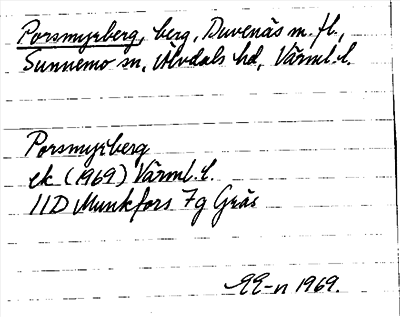 Porsmyrberg, berg, Duvenäs m. fl.,
Sunnemo sn, Älvdals hd, Värml. l.
Porsmyrberg
ek (1969) Värml. l.
11D Munkfors 7g Gräs
EE-n 1969.